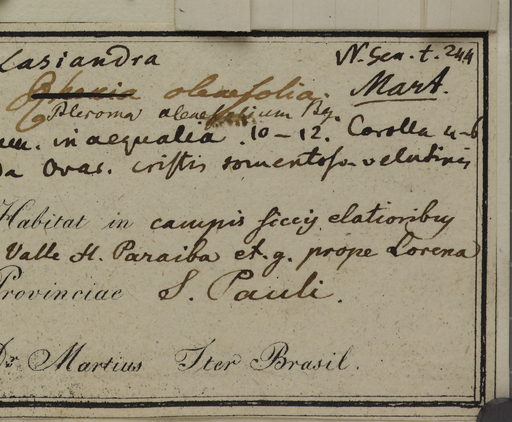 Lasiandra N. Gen. t. 244
Rhexia oleaefolia. Mart.
Pleroma oleaefolium
inaequalia . 10-12. Corolla 4-6
Ovar. cristis tomentoso velutinis
Habitat in campis siccis elatioribus
Valle fl. Paraiba et.g. prope Lorena
Provinciae S. Pauli.
Dr. Martius Iter Brasil.